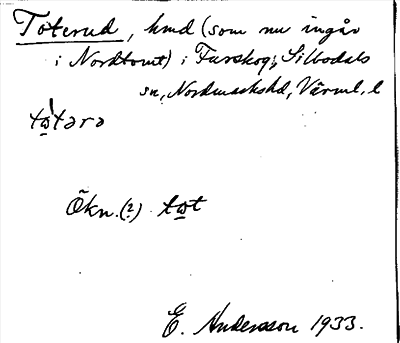 Toterud, hmd (som nu ingår
i Nordtomt) i Furskog, Silbodals
sn, Nordmarkshd, Värml. l
tὼ̲tərə
Ökn.(?) tω̲t
E. Andersson 1933.